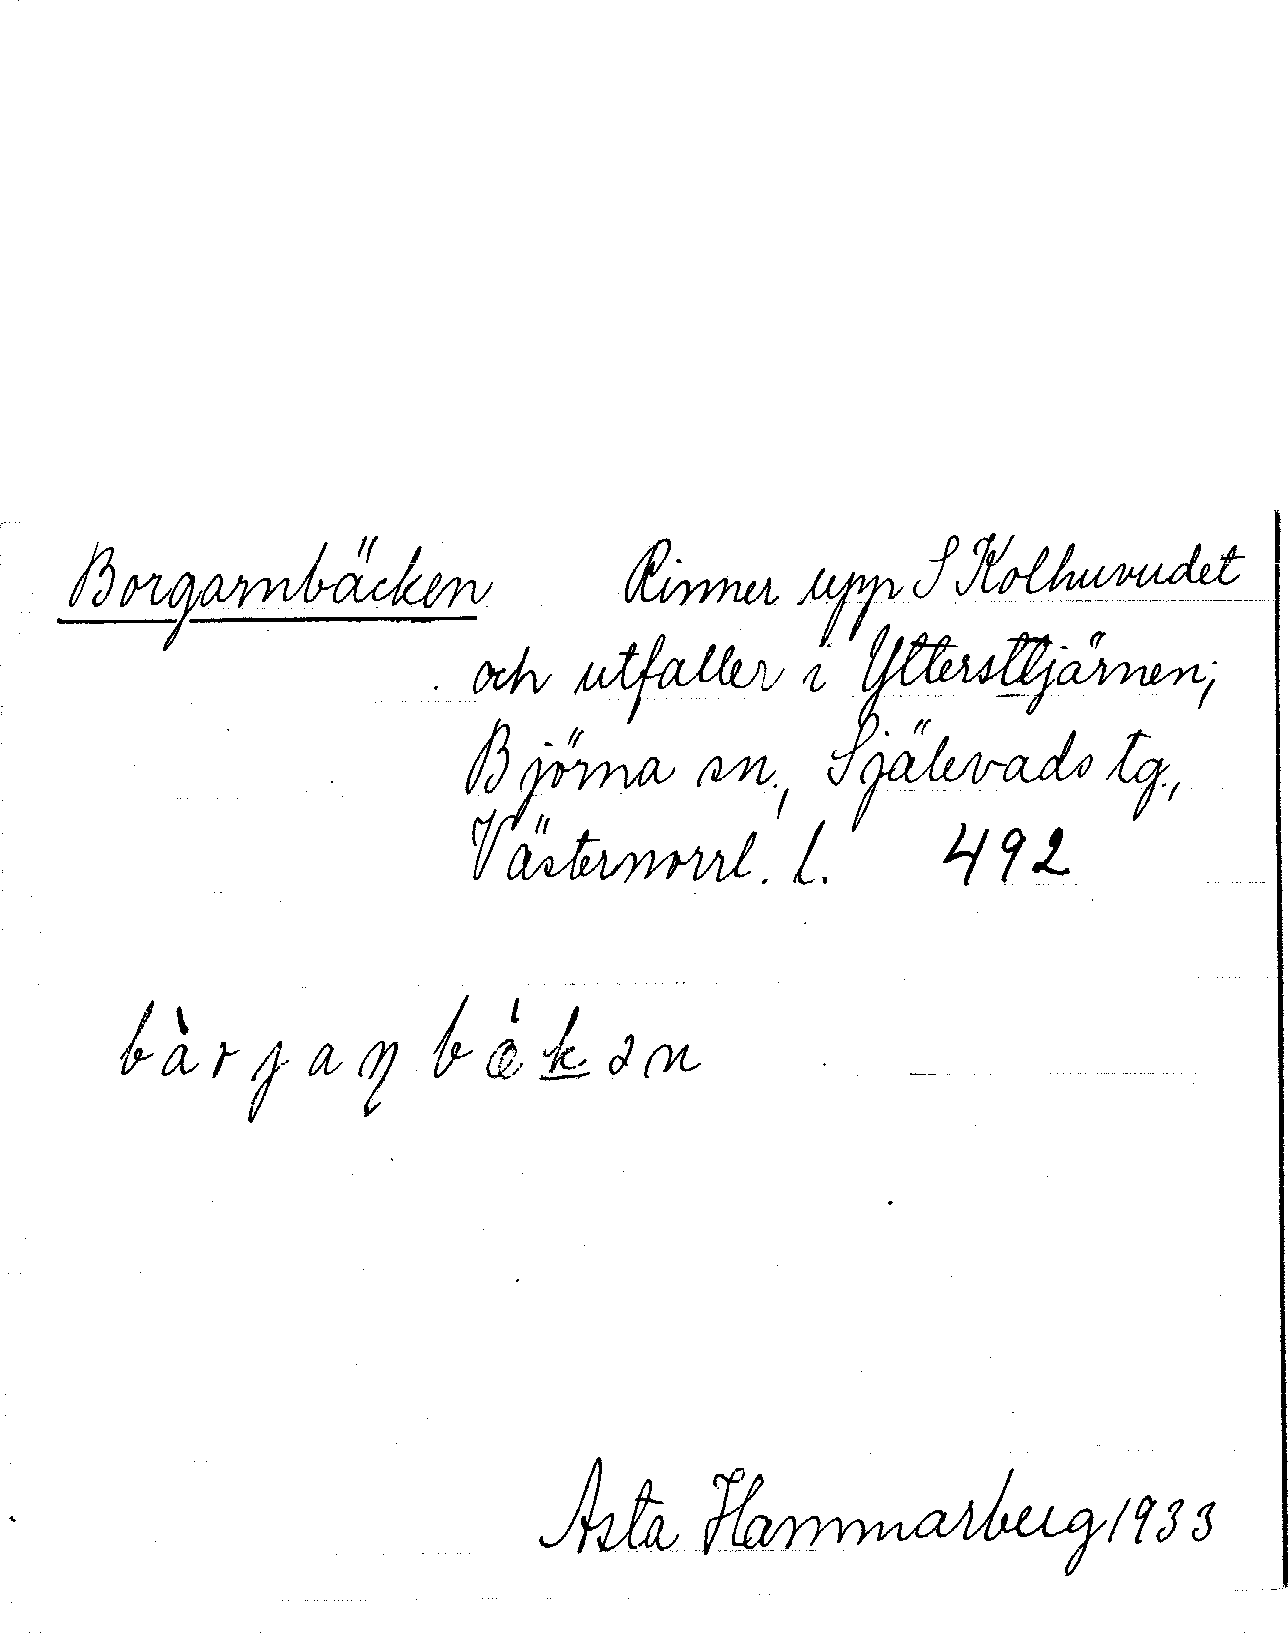 Borgarnbäcken Rinner upp S Kolhuvudet
och utfaller i Yttersttjärnen;
Björna sn., Själevads tg.,
Västernorrl. l. 492
bàrjaŋbǽkən
Asta Hammarberg 1933